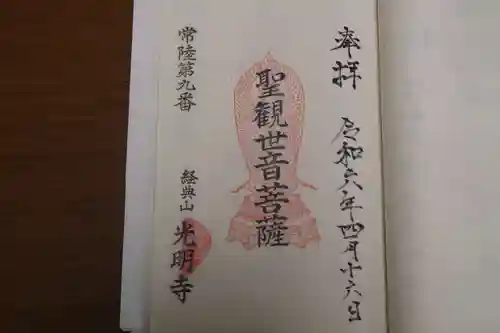 奉拝 令和六年四月十六日
聖観世音菩薩
常陸第九番
経典山 光明寺